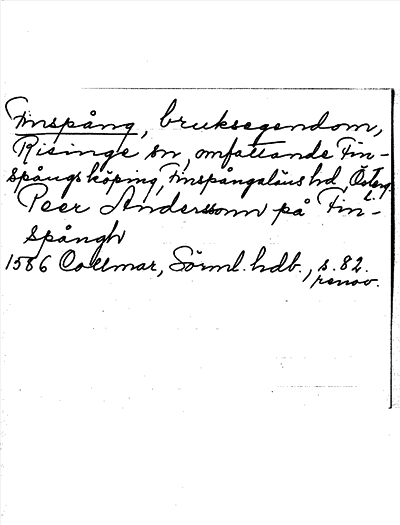 Finspång, bruksegendom,
Risinge sn, omfattande Fin-
spångs köping, Finspångaläns hd, Österg.
l.
Peer Anderssonn på Fin-
spångh
1586 Collmar, Sörml. hdb., s. 82.
renov.